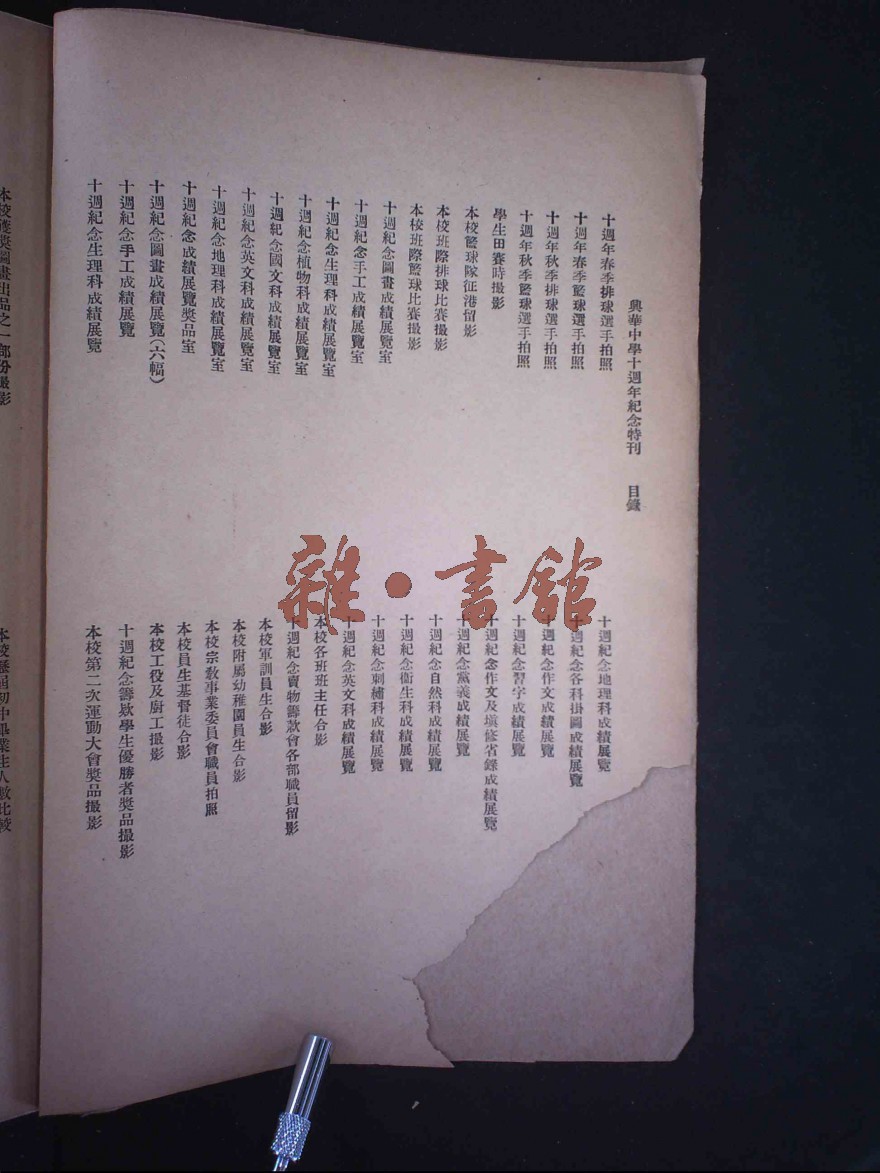 興華中學十週年紀念特刊 目錄
十週年春季排球選手拍照
十週年春季籃球選手拍照
十週年秋季排球選手拍照
十週年秋季籃球選手拍照
學生田賽時撮影
本校籃球隊征港留影
本校班際排球比賽撮影
本校班際籃球比賽撮影
十週紀念圖畫成績展覽室
十週紀念手工成績展覽室
十週紀念生理科成績展覽室
十週紀念植物科成績展覽室
十週紀念國文科成績展覽室
十週紀念英文科成績展覽室
十週紀念地理科成績展覽室
十週紀念成績展覽獎品室
十週紀念圖畫成績展覽(六幅)
十週紀念手工成績展覽
十週紀念生理科成績展覽
十週紀念地理科成績展覽
十週紀念各科掛圖成績展覽
十週紀念作文成績展覽
十週紀念習字成績展覽
十週紀念作文及塡修省錄成績展覽
十週紀念黨義成績展覽
十週紀念自然科成績展覽
十週紀念衞生科成績展覽
十週紀念刺繡科成績展覽
十週紀念英文科成績展覽
本校各班班主任合影
十週紀念賣物籌款會各部職員留影
本校軍訓員生合影
本校附屬幼稚園員生合影
本校宗敎事業委員會職員拍照
本校員生基督徒合影
本校工役及廚工撮影
十週紀念籌欵學生優勝者獎品撮影
本校第二次運動大會獎品撮影
本校獲獎圖畫出品之一部份撮影
本校歷屆初中畢業生人數比較
雜·書館